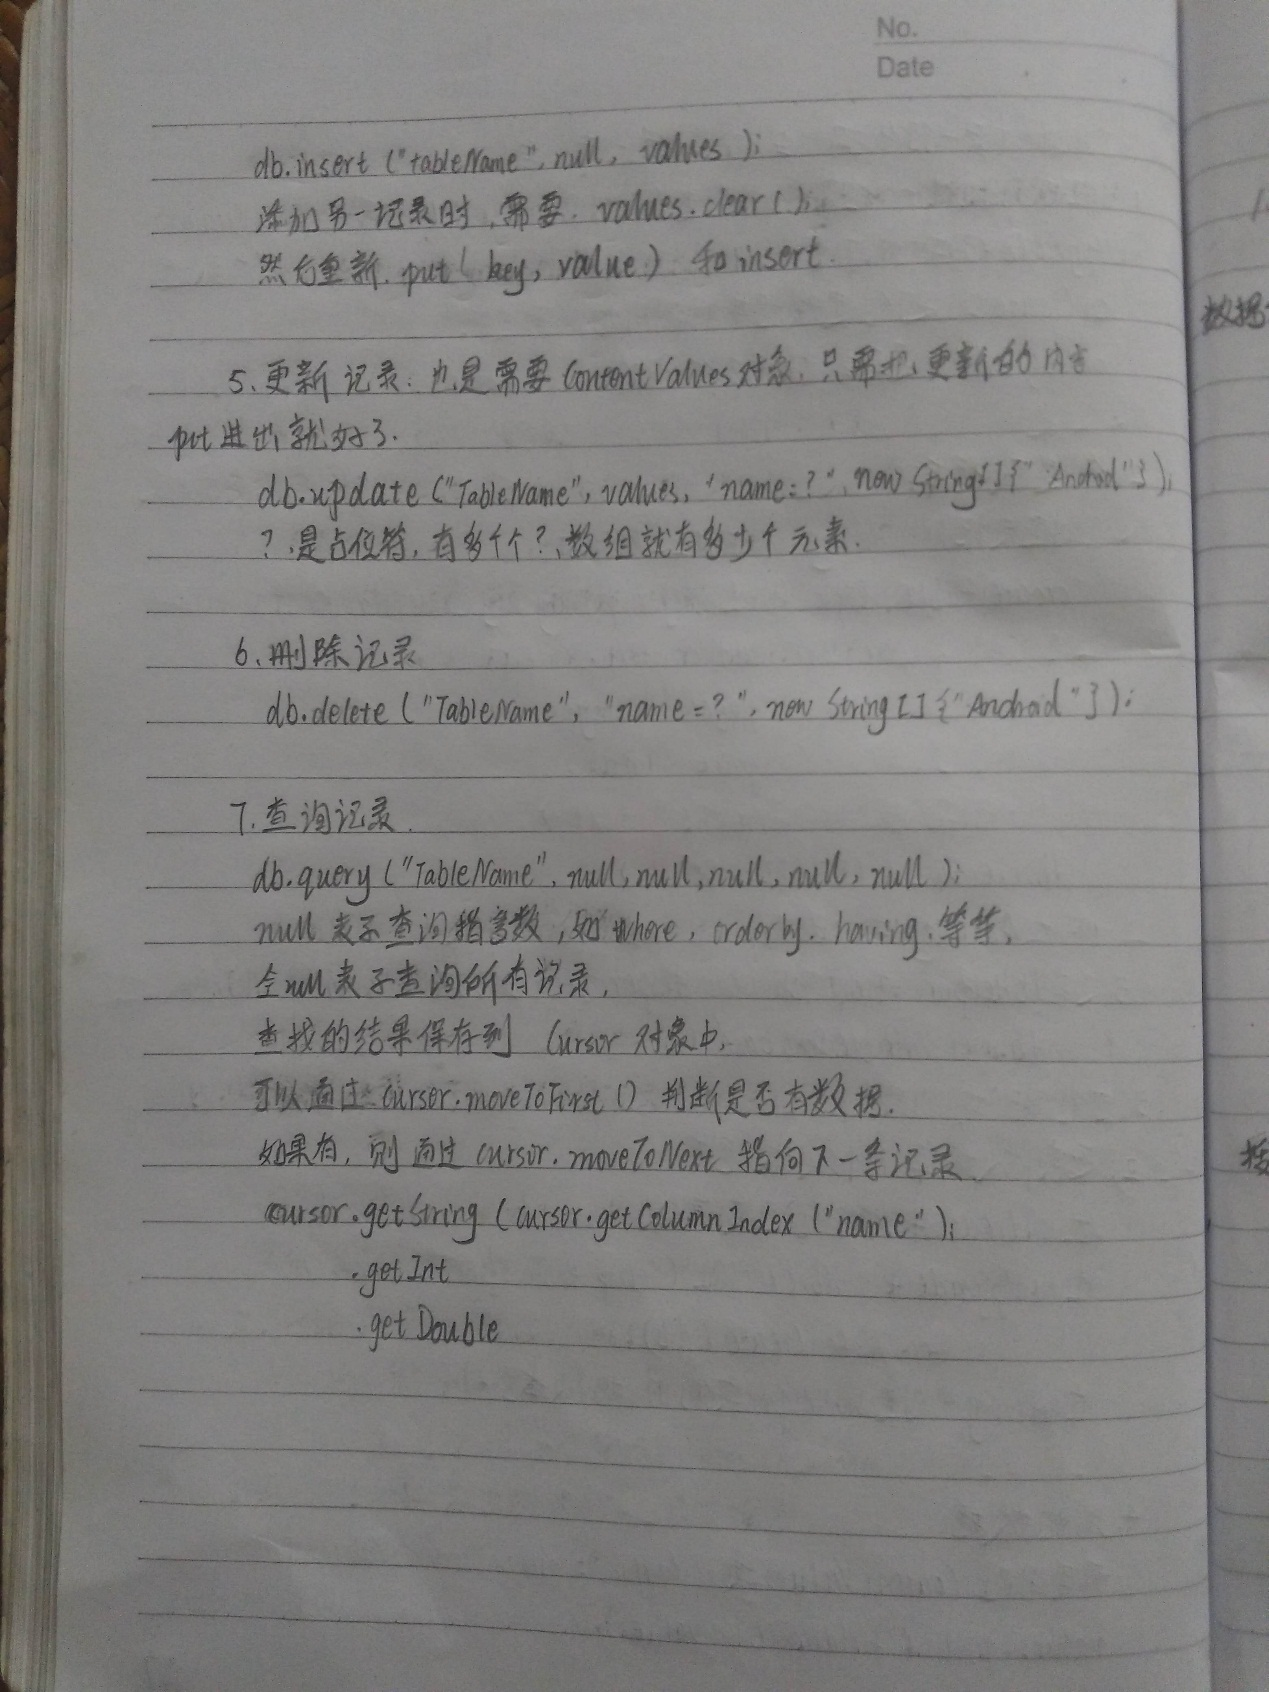 No.
Date
db.insert ("tableName", null, values );
添加另一记录时,需要. values.clear();
然后重新. put( key, value) 和 insert.
5、更新记录: 也是需要 ContentValues对象, 只需把更新的内容
put进去就好了.
db.update ("TableName", values, "name=?", new String[]{"Android"});
?、是占位符, 有多个个?、数组就有多少个元素.
6、删除记录
db.delete ("TableName", "name=?", new String[]{"Android"});
7.查询记录.
db.query ("TableName", null, null, null, null, null );
null 表示查询指参数,如 where, orderby. having.等等.
全null表示查询所有记录,
查找的结果保存到 Cursor 对象中.
可以通过 cursor.moveToFirst () 判断是否有数据.
如果有, 则通过 cursor.moveToNext 指向下一条记录
cursor.getString (cursor.getColumnIndex ("name");
.getInt
.getDouble
数据